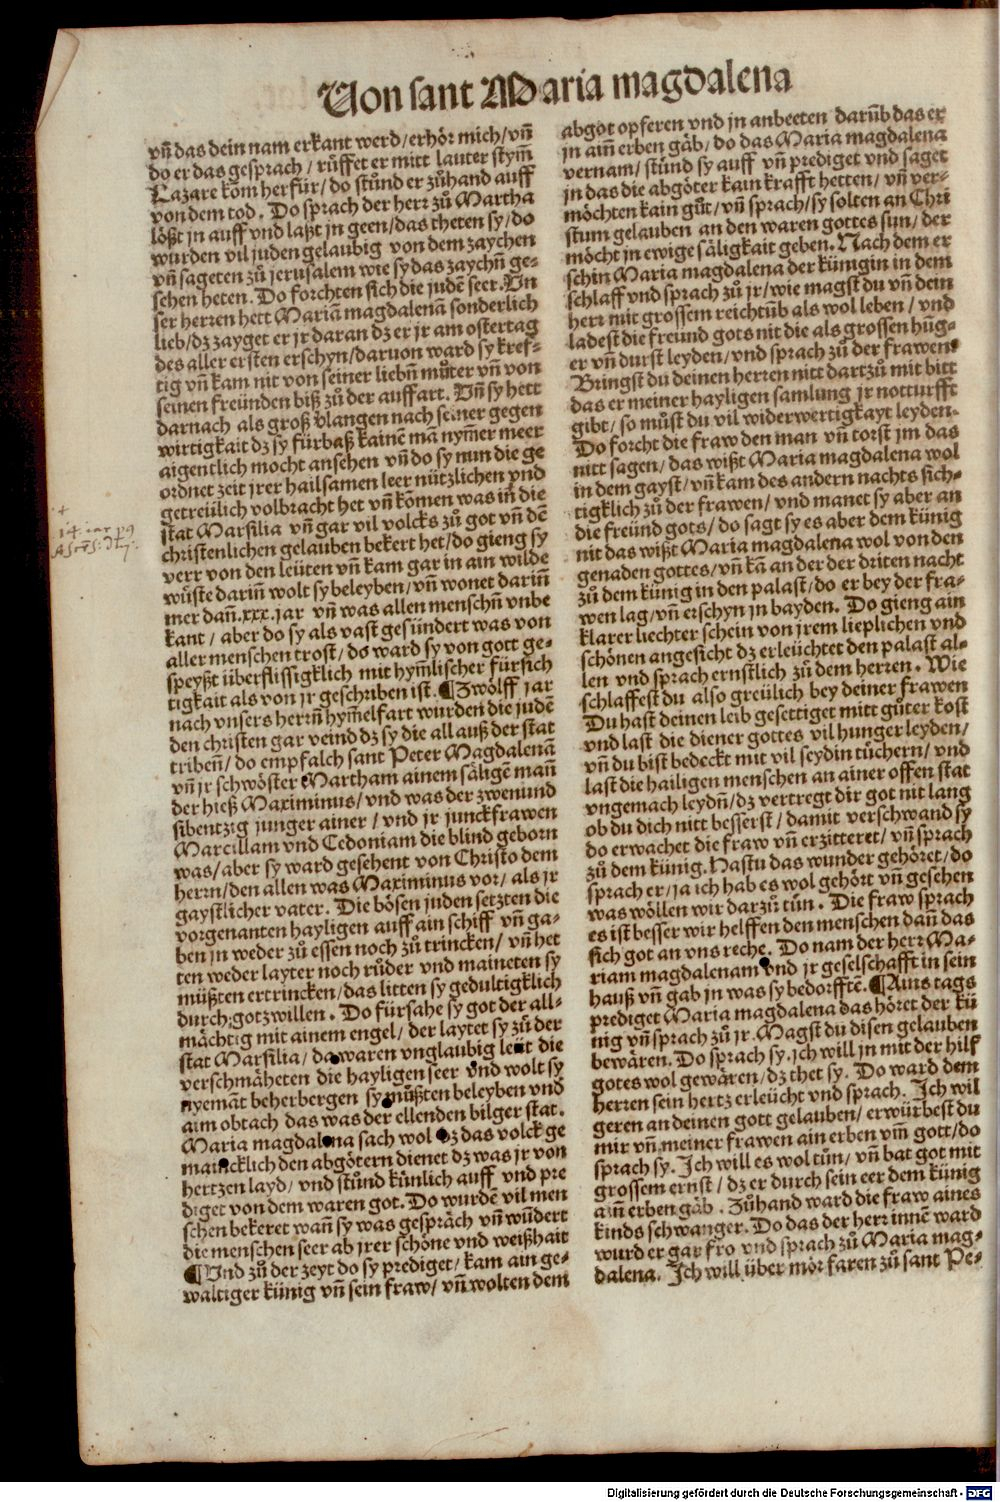 Von sant Maria magdalena
vñ das dein nam erkant werd/erhör mich/vñ
do er das gesprach / rüffet er mitt lauter stym̄
Lazare kom herfür/do stůnd er zůhand auff
von dem tod. Do sprach der herr zů Martha
lößt jn auff vnd laßt jn geen/das theten sy/do
wurden vil juden gelaubig von dem zaychen
vñ sageten zů jerusalem wie sy das zaychñ ge-
sehen heten. Do forchten sich die judē seer. Vn
ser herren hett Mariā magdalenā sonderlich
lieb/dz zayget er jr daran dz er jr am ostertag
des aller ersten erschyn/daruon ward sy kref-
tig vñ kam nit von seiner liebñ můter vñ von
seinen freünden biß zů der auffart. Vñ sy hett
darnach als groß vlangen nach seiner gegen
wirtigkait dz sy fürbaß kainē mā nym̄er meer
aigentlich mocht ansehen vñ do sy nun die ge
ordnet zeit jrer hailsamen leer nützlichen vnd
getreiülich volbracht het vñ kōmen was in die
stat Marsilia vñ gar vil volcks zů got vñ dē
christenlichen gelauben bekert het/do gieng sy
verr von den leüten vñ kam gar in ain wilde
wůste dariñ wolt sy beleyben/vñ wonet dariñ
mer dañ.xxx.jar vñ was allen menschñ vnbe
kant / aber do sy als vast gesündert was von
aller menschen trost/do ward sy von gott ge-
speyßt überflissigklich mit hym̄lischer fürsich
tigkait als von jr geschriben ist. ¶Zwölff jar
nach vnsers herrñ hym̄elfart wurden die judē
den christen gar veind dz sy die all auß der stat
tribeñ/do empfalch sant Peter Magdalenā
vñ jr schwöster Martham ainem säligē mañ
der hieß Maximinus/vnd was der zwenund
sibentzig junger ainer / vnd jr junckfrawen
Marcillam vnd Cedoniam die blind geborn
was/aber sy ward gesehent von Christo dem
herrn/den allen was Maximinus vor/als jr
gaystlicher vater. Die bösen juden setzten die
vorgenanten hayligen auff ain schiff vñ ga-
ben in weder zů essen noch zů trincken/vñ het
ten weder layter noch růder vnd maineten sy
müßten ertrincken/das litten sy gedultigklich
durch gotz willen. Do fürsahe sy got der all-
mächtig mit ainem engel/der laytet sy zů der
stat Marsilia/da waren vnglaubig leüt die
verschmäheten die hayligen seer vnd wolt sy
nyemāt beherbergen sy müßten beleyben vnd
aim obtach das was der ellenden bilger stat.
Maria magdalena sach wol dz das volck ge
maincklich den abgötern dienet dz was jr von
hertzen layd/vnd stůnd künlich auff vnd pre
diget von dem waren got. Do wurdē vil men
schen bekeret wañ sy was gespräch vñ wūdert
die menschen seer ab jrer schöne vnd weißhait
¶Vnd zů der zeyt do sy prediget/kam ain ge-
waltiger künig vñ sein fraw/vñ wolten dem
abgot opferen vnd jn anbeeten darūb das er
jn aiñ erben gäb/do das Maria magdalena
vernam/stůnd sy auff vñ prediget vnd saget
jn das die abgöter kain krafft hetten/vñ ver-
möchten kain gůt/vñ sprach/sy solten an Chri
stum gelauben an den waren gottes sun/der
möcht jn ewige säligkait geben. Nach dem er
schin Maria magdalena der künigin in dem
schlaff vnd sprach zů jr/wie magst du vñ dem
herr mit grossem reichtůb als wol leben/vnd
ladest die freünd gots nit die als grossen hūg-
er vñ durst leyden/vnd sprach zů der frawen
Bringst du deinen herren nitt dartzů mit bitt
das er meiner hayligen samlung jr notturfft
gibt/so můst du vil widerwertigkayt leyden.
Do forcht die fraw den man vñ torst jm das
nitt sagen/das wißt Maria magdalena wol
in dem gayst/vñ kam des andern nachts sich-
tigklich zů der frawen/vnd manet sy aber an
die freünd gots/do sagt sy es aber dem künig
nit das wißt Maria magdalena wol von den
genaden gottes/vñ kā an der der driten nacht
zů dem künig in den palast/do er bey der fra-
wen lag/vñ erschyn jn bayden. Do gieng ain
klarer liechter schein von jrem lieplichen vnd
schönen angesicht dz erleüchtet den palast al-
len vnd sprach ernstlich zů dem herren. Wie
schlaffest du also greülich bey deiner frawen
Du hast deinen leib gesettiget mitt gůter kost
vnd last die diener gottes vil hunger leyden/
vñ du bist bedeckt mit vil seydin tüchern/vnd
last die hailigen menschen an ainer offen stat
vngemach leydñ/dz vertregt dir got nit lang
ob du dich nitt besserst/damit verschwand sy
do erwachet die fraw vñ erzitteret/vñ sprach
zů dem künig. Hastu das wunder gehöret/do
sprach er/ja ich hab es wol gehört vñ gesehen
was wöllen wir darzů tůn. Die fraw sprach
es ist besser wir helffen den menschen dañ das
sich got an vns reche. Do nam der herr Ma-
riam magdalenam vnd jr geselschafft in sein
hauß vñ gab jn was sy bedorfftē. ¶Ains tags
prediget Maria magdalena das höret der kü
nig vñ sprach zů jr. Magst du disen gelauben
bewären. Do sprach sy. ich will jn mit der hilf
gotes wol gewären/dz thet sy. Do ward dem
herren sein hertz erleücht vnd sprach. Ich wil
geren an deinen gott gelauben/erwürbest du
mir vñ meiner frawen ain erben vm̄ gott/do
sprach sy. Ich will es wol tůn/vñ bat got mit
grossem ernst/dz er durch sein eer dem künig
aiñ erben gäb. Zůhand ward die fraw aines
kinds schwanger. Do das der herr innē ward
wurd er gar fro vnd sprach zů Maria mag-
dalena. Ich will über mör faren zů sant Pe-
Digitalisierung gefördert durch die Deutsche Forschungsgemeinschaft - DFG